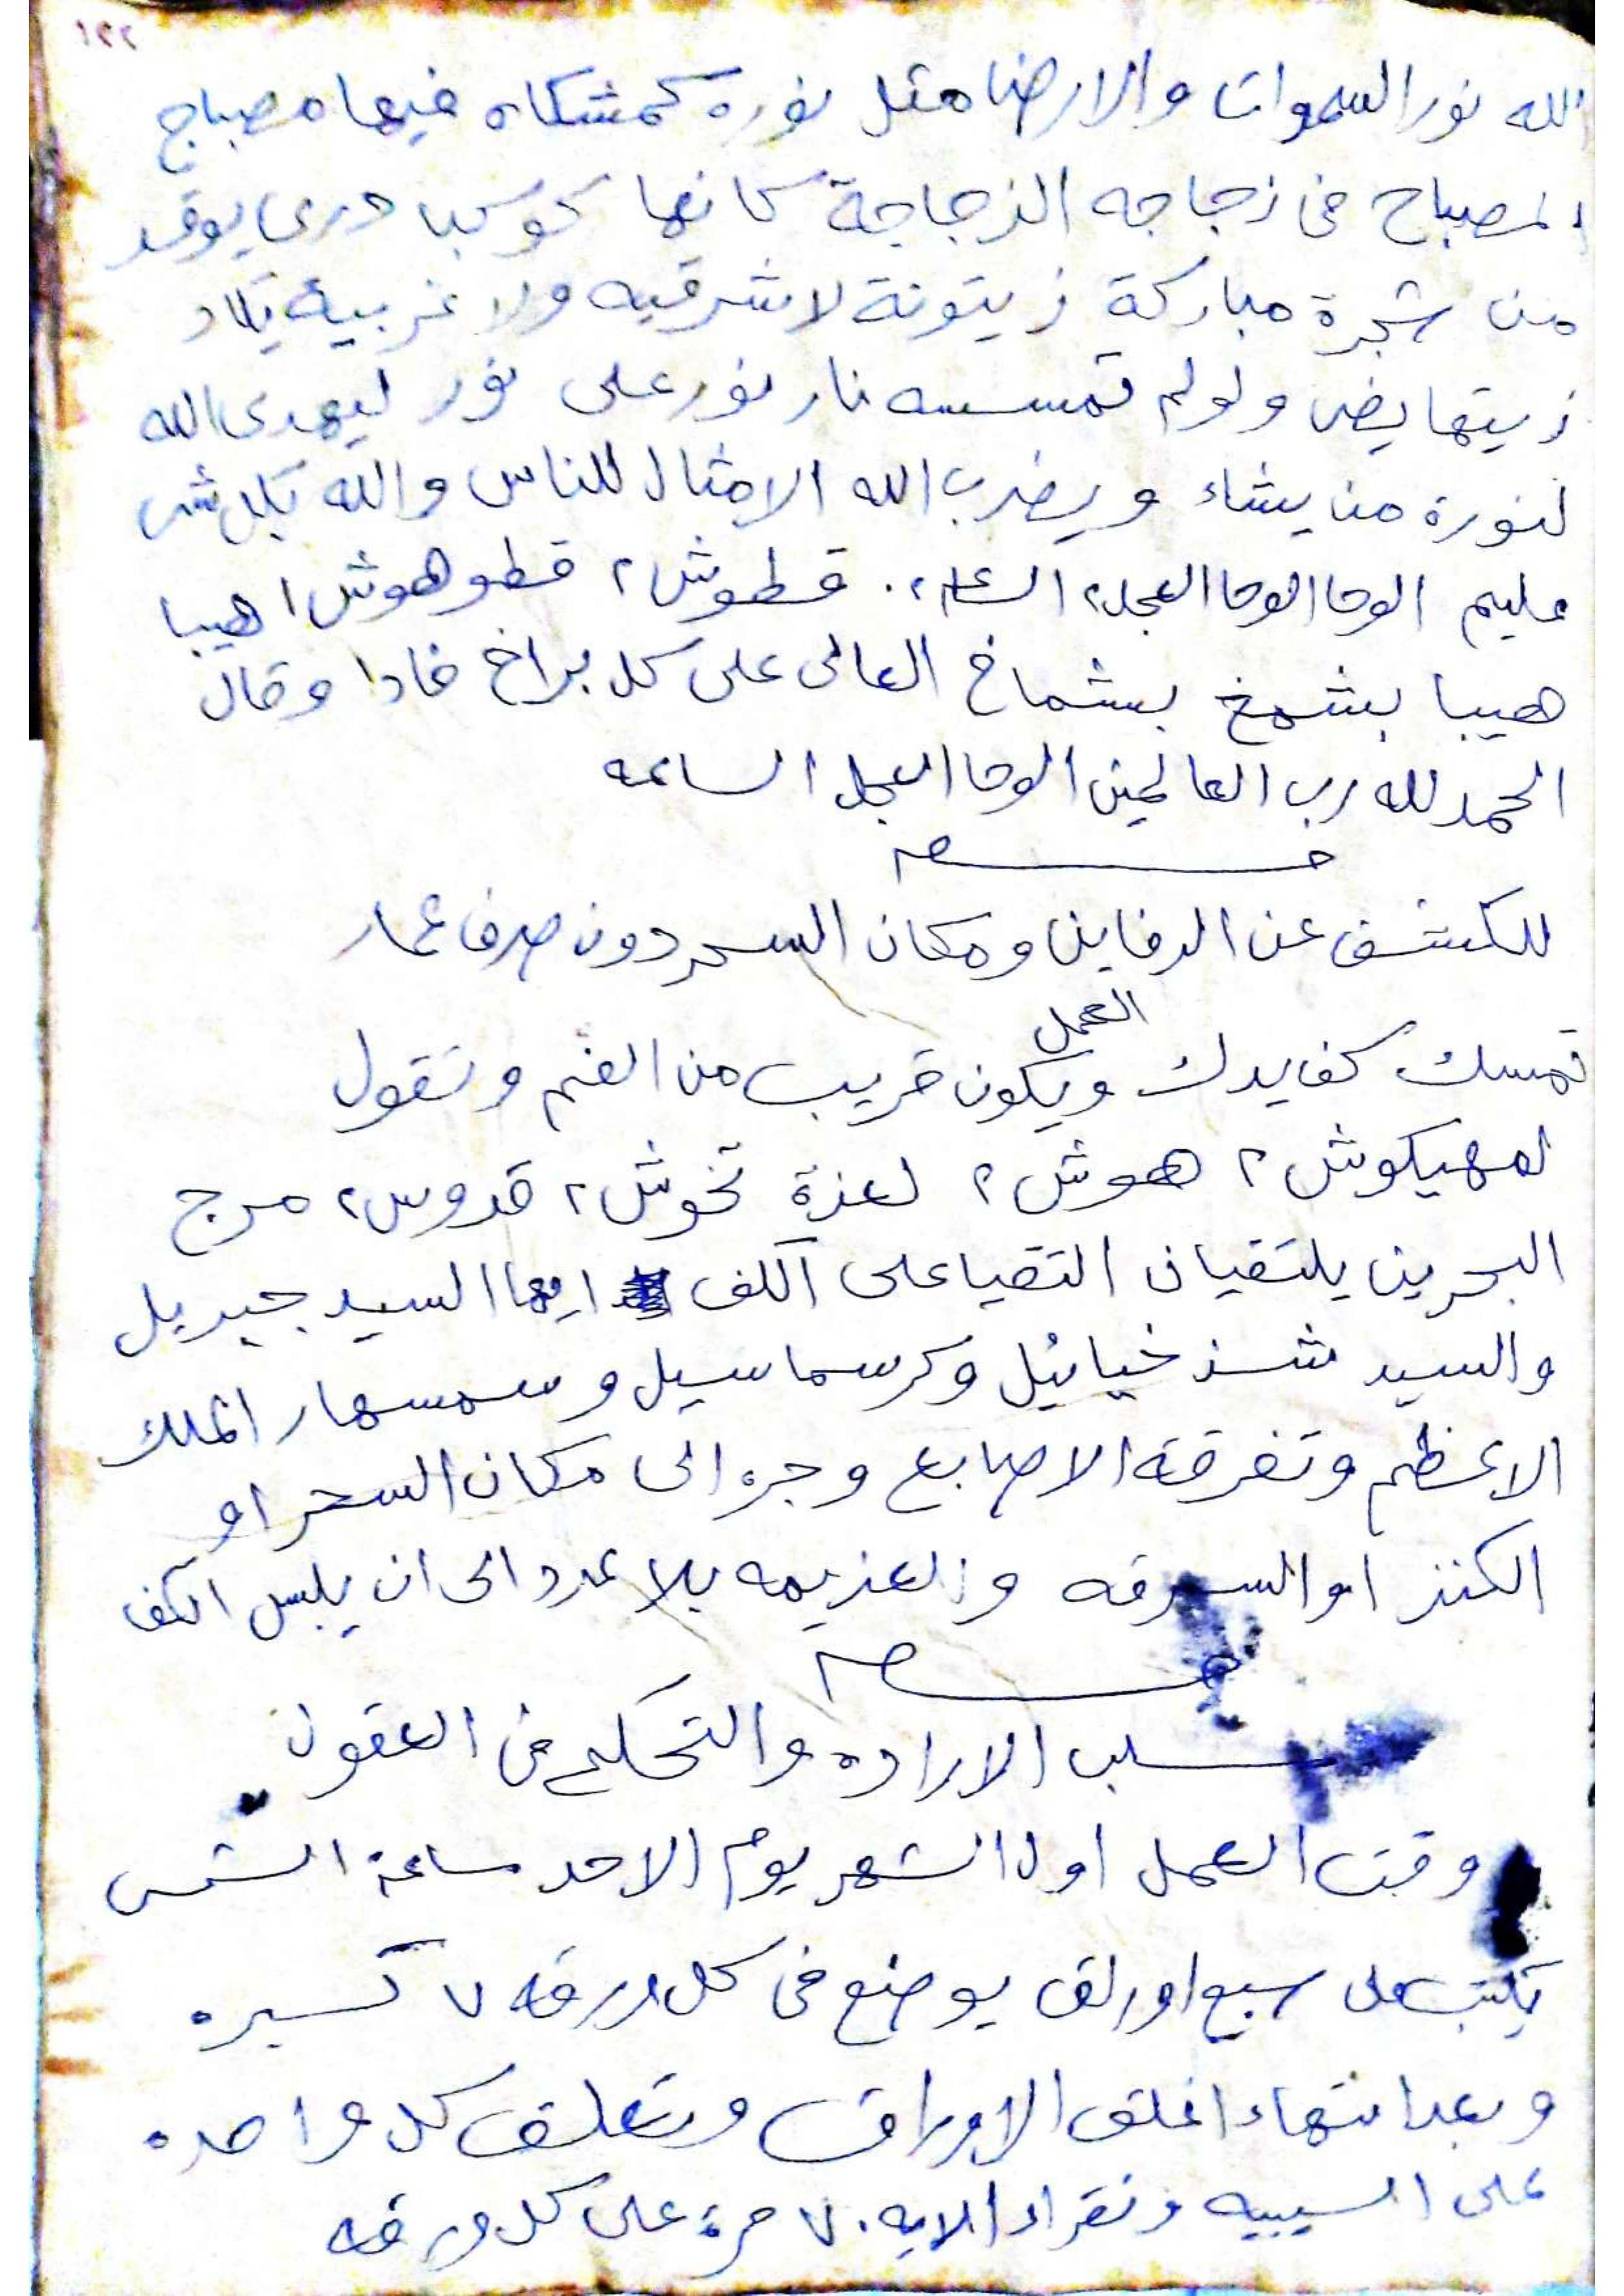 ٢٢١
الله نور السموات والارض مثل نوره كمشكاه فيها مصباح
المصباح فى زجاجه الزجاجة كانها كوكب درى يوقد
من شجرة مباركة زيتونة لا شرقيه ولا غربية يكاد
زيتها يضى ولو لم تمسسه نار نور على نور ليهدى الله
لنورة من يشاء ويضرب الله الامثال للناس والله بكل شى
عليم الوحا الوحا العجل٢ الساعه٢. قطوش٢ قطوهوش١ هيبا
هيبا بشمخ بشماخ العالى على كل براخ فادا وقال
الحمد لله رب العالمين الوحا العجل الساعه
للكشف عن الدفاين ومكان السحر دون صرف عمار
العمل
تمسك كف يدك ويكون قريب من الفم وتقول
لمهيكوش٢ هوش٢ لعزة تخوش٢ قدوس٢ مرج
البحرين يلتقيان التقيا على الكف ايها السيد جبريل
والسيد شذخيائيل وكرسماسيل وسمسهار الملك
الاعظم وتفرقة الاصابع وجره الى مكان السحر او
الكنز او السرقه والعزيمه بلا عدد الى ان يلبس الكف
سلب الاراده والتحكم فى العقول
وقت العمل اول الشهر يوم الاحد ساعة الشمس
يكتب على سبع اوراق يوضع فى كل ورقه ٧ كسبره
وبعد انتهاء اغلق الاوراق وتعلق كل واحده
على السيبيه وتقراء الايه ٧٠ مرة على كل ورقه